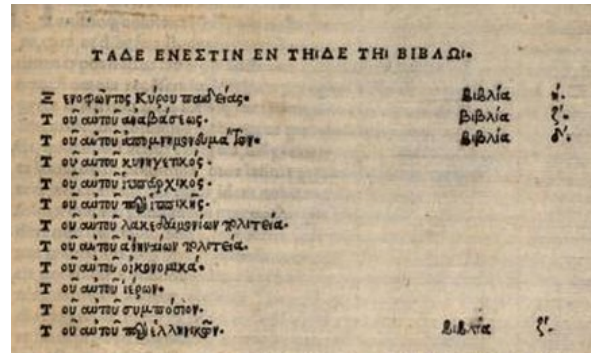 ΤΑΔΕ ΕΝΕΣΤΙΝ ΕΝ ΤΗΙΔΕ ΤΗΙ ΒΙΒΛΩΙ.
Ξενοφῶντος Κύρου παιδείας. βιβλία ή.
Τοῦ αὐτοῦ ἀναβάσεως. βιβλία ζ΄.
Τοῦ αὐτοῦ ἀπομνημονευμάτων. βιβλία δ΄.
Τοῦ αὐτοῦ κυνηγετικός.
Τοῦ αὐτοῦ ἱππαρχικός.
Τοῦ αὐτοῦ περὶ ἱππικῆς.
Τοῦ αὐτοῦ λακεδαιμονίων πολιτεία.
Τοῦ αὐτοῦ ἀθηναίων πολιτεία.
Τοῦ αὐτοῦ οἰκονομικά.
Τοῦ αὐτοῦ ἱέρων.
Τοῦ αὐτοῦ συμπόσιον.
Τοῦ αὐτοῦ περὶ ἑλληνικῶν. βιβλία ζ΄.